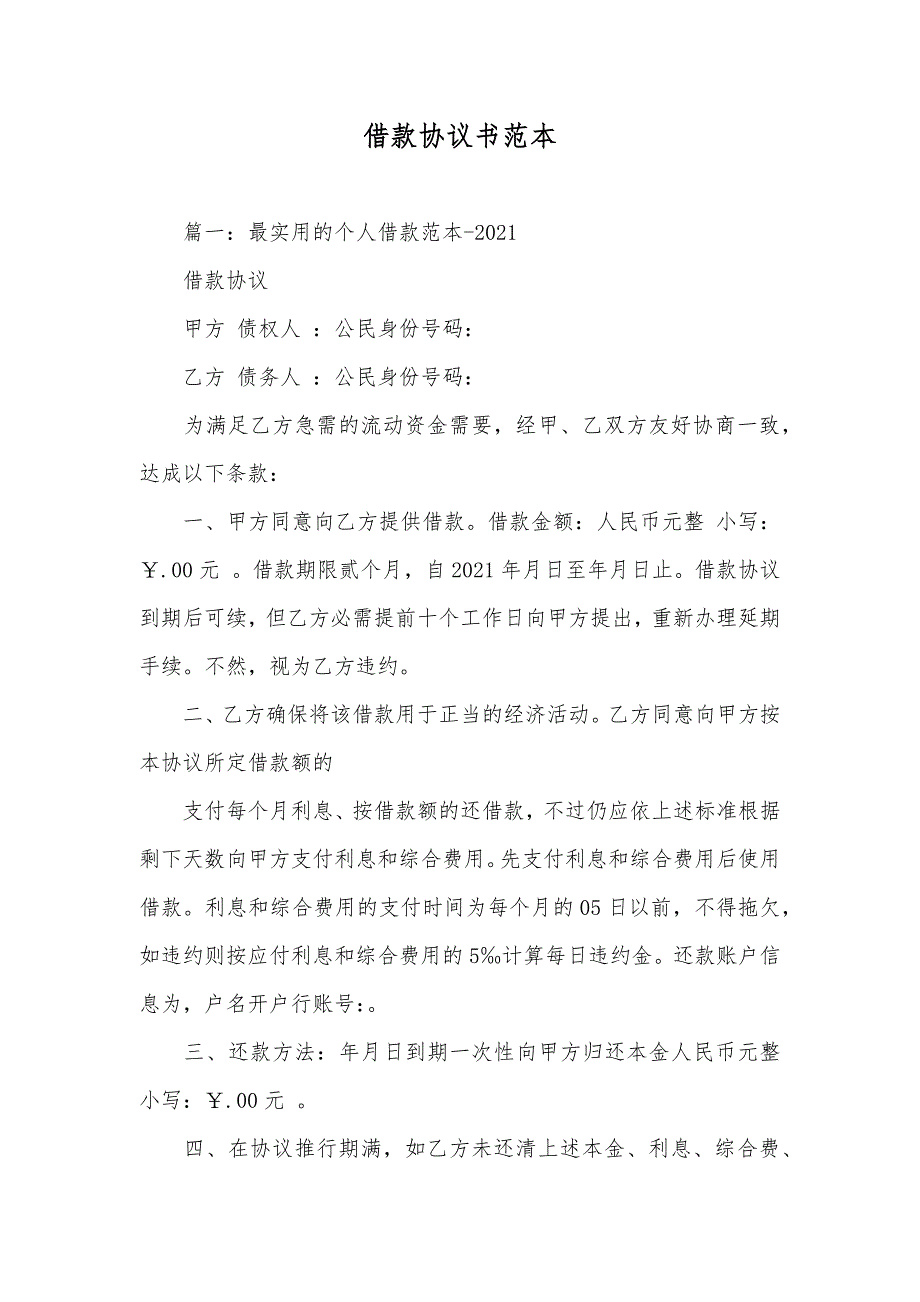 借款协议书范本
篇一：最实用的个人借款范本-2021
借款协议
甲方 债权人 ：公民身份号码：
乙方 债务人 ：公民身份号码：
为满足乙方急需的流动资金需要，经甲、乙双方友好协商一致，
达成以下条款：
一、甲方同意向乙方提供借款。借款金额：人民币元整 小写：
￥.00元 。借款期限贰个月，自2021年月日至年月日止。借款协议
到期后可续，但乙方必需提前十个工作日向甲方提出，重新办理延期
手续。不然，视为乙方违约。
二、乙方确保将该借款用于正当的经济活动。乙方同意向甲方按
本协议所定借款额的
支付每个月利息、按借款额的还借款，不过仍应依上述标准根据
剩下天数向甲方支付利息和综合费用。先支付利息和综合费用后使用
借款。利息和综合费用的支付时间为每个月的05日以前，不得拖欠，
如违约则按应付利息和综合费用的5‰计算每日违约金。还款账户信
息为，户名开户行账号：。
三、还款方法：年月日到期一次性向甲方归还本金人民币元整
小写：￥.00元 。
四、在协议推行期满，如乙方未还清上述本金、利息、综合费、